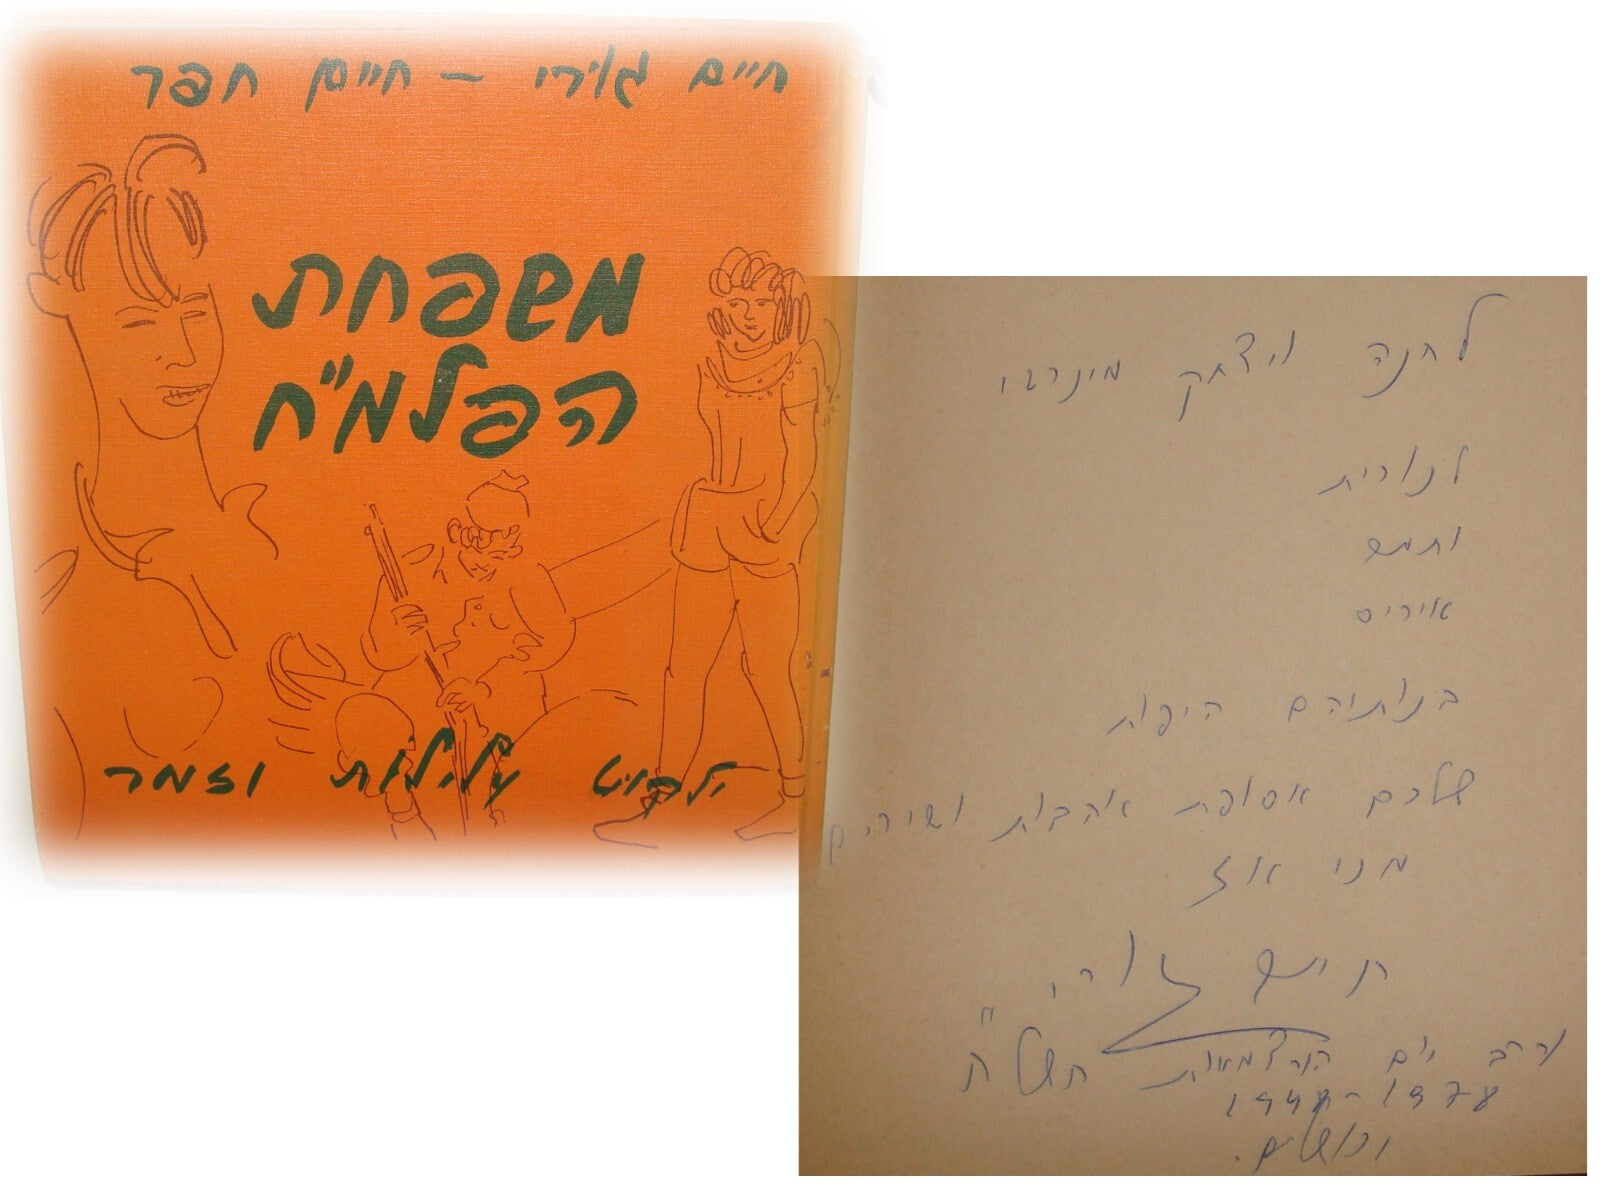 חיים גורי – חיים חפר
משפחת
הפלמ״ח
ילקוט עלילות וזמר
לחנה ויצחק
לנורית
ותמר
איריס
בנותיהם היפות
שלכם אסופת אהבות ושירים
מני אז
חיים גורי
ערב יום העצמאות תשל״ח
1948-1978
ירושלים.